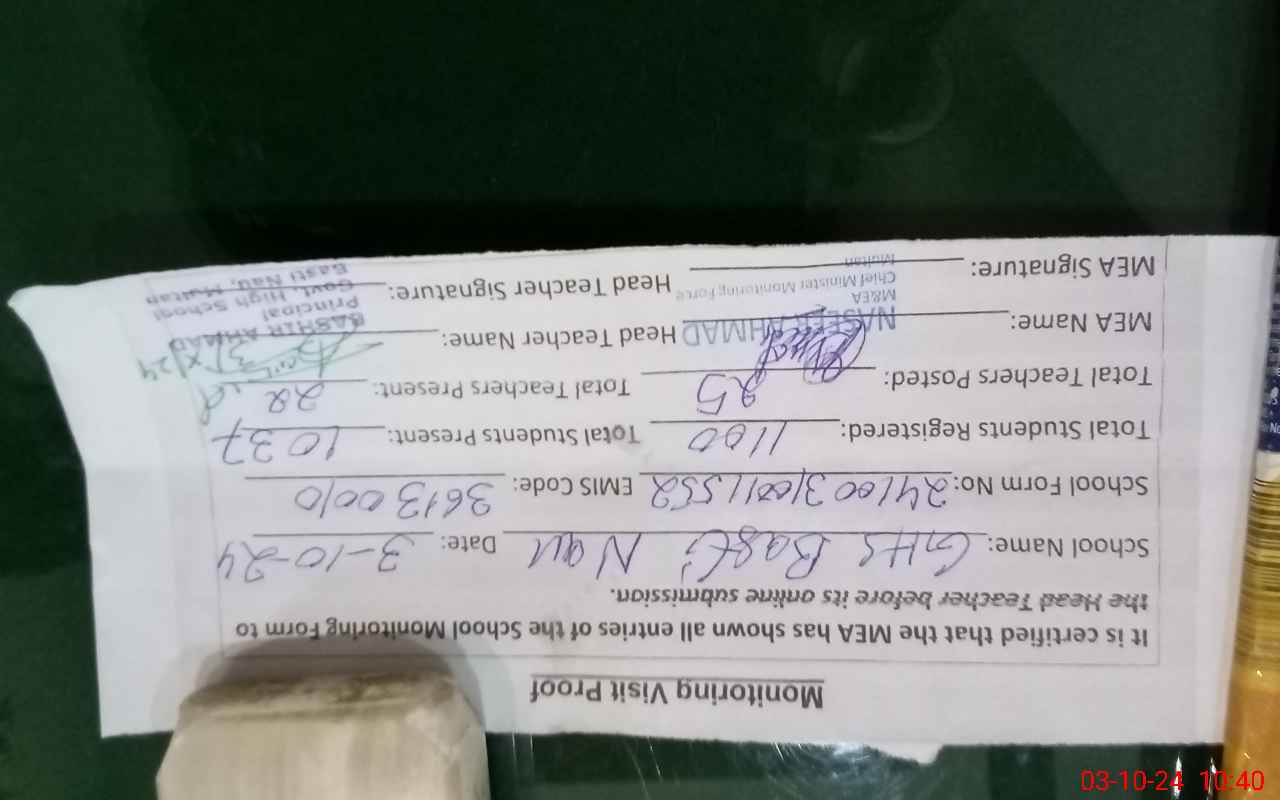 Monitoring Visit Proof
It is certified that the MEA has shown all entries of the School Monitoring Form to
the Head Teacher before its online submission.
School Name: GHS Basti Nau Date: 3-10-24
School Form No: 2410031001552 EMIS Code: 36130010
Total Students Registered: 1100 Total Students Present: 1037
Total Teachers Posted: 25 Total Teachers Present: 22
MEA Name: NASEER AHMAD Head Teacher Name: BASHIR AHMAD
M&EA Principal
Chief Minister Monitoring Force Govt. High School
Multan Basti Nau, Multan
MEA Signature: Head Teacher Signature:
03-10-24 10:40